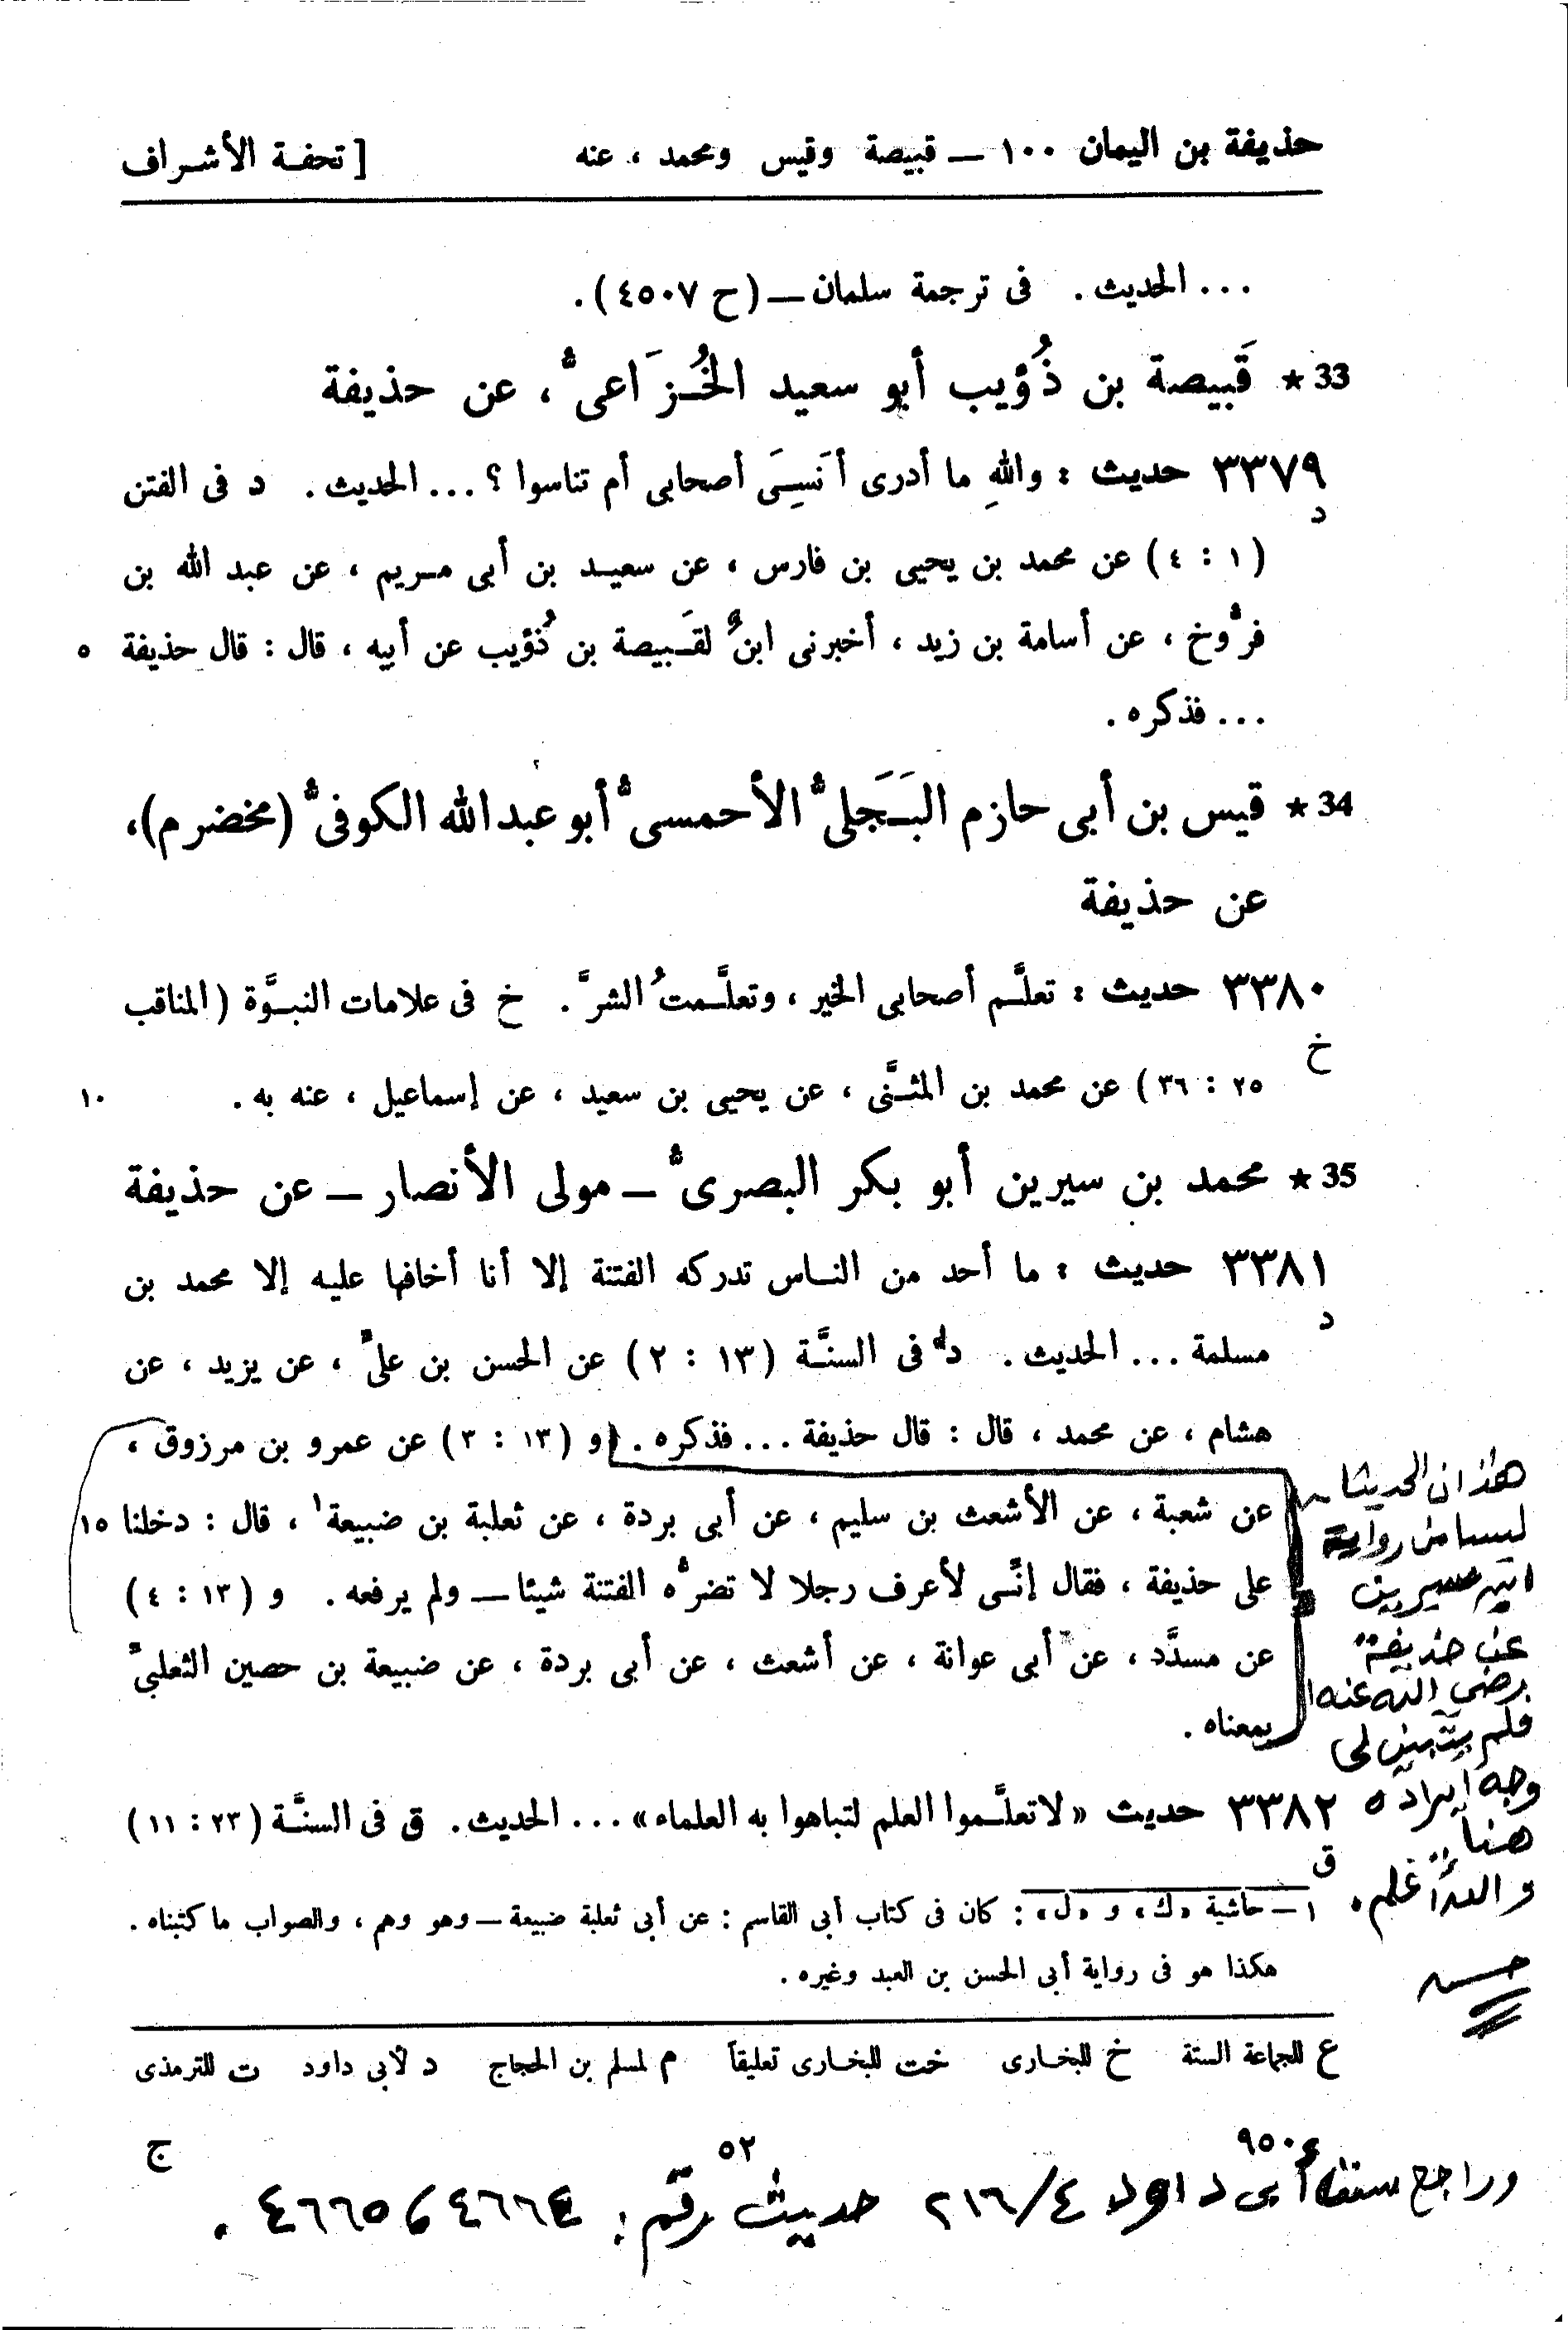 حذيفة بن اليمان ١٠٠ — قبيصة وقيس ومحمد ، عنه [ تحفة الأشراف
... الحديث . فى ترجمة سلمان — (ح ٤٥٠٧) .
33 ★ قَبيصة بن ذُؤيب أبو سعيد الخُزَاعىُّ ، عن حذيفة
٣٣٧٩ حديث : واللهِ ما أدرى أَنَسِىَ أصحابى أم تناسوا ؟ ... الحديث . د فى الفتن
د
(١ : ٤) عن محمد بن يحيى بن فارس ، عن سعيد بن أبى مريم ، عن عبد الله بن
فرُّوخ ، عن أسامة بن زيد ، أخبرنى ابنٌ لقَبيصة بن ذُؤيب عن أبيه ، قال : قال حذيفة ٥
... فذكره .
34 ★ قيس بن أبى حازم البَجَلىُّ الأحمسىُّ أبو عبد الله الكوفىُّ (مخضرم)،
عن حذيفة
٣٣٨٠ حديث : تعلَّم أصحابى الخير ، وتعلَّمتُ الشرَّ . خ فى علامات النبوَّة (المناقب
خ
٢٥ : ٣٦) عن محمد بن المثنَّى ، عن يحيى بن سعيد ، عن إسماعيل ، عنه به . ١٠
35 ★ محمد بن سيرين أبو بكر البصرىُّ — مولى الأنصار — عن حذيفة
٣٣٨١ حديث : ما أحد من الناس تدركه الفتنة إلا أنا أخافها عليه إلا محمد بن
د
مسلمة ... الحديث . د فى السنَّة (١٣ : ٢) عن الحسن بن علىّ ، عن يزيد ، عن
هشام ، عن محمد ، قال : قال حذيفة ... فذكره . و (١٣ : ٣) عن عمرو بن مرزوق ،
عن شعبة ، عن الأشعث بن سليم ، عن أبى بردة ، عن ثعلبة بن ضبيعة١ ، قال : دخلنا ١٥
على حذيفة ، فقال إنِّى لأعرف رجلا لا تضرُّه الفتنة شيئا — ولم يرفعه . و (١٣ : ٤)
عن مسدَّد ، عن أبى عوانة ، عن أشعث ، عن أبى بردة ، عن ضبيعة بن حصين الثعلبىّ
بمعناه .
هذان الحديثان
ليسا من رواية
ابن سيرين
عن حذيفة
رضى الله عنه
فلم يتبين لى
وجه إيراده
هنا
والله أعلم .
٣٣٨٢ حديث «لا تعلَّموا العلم لتباهوا به العلماء» ... الحديث . ق فى السنَّة (٢٣ : ١١)
ق
١ — حاشية «ك» و «ل» : كان فى كتاب أبى القاسم : عن أبى ثعلبة ضبيعة — وهو وهم ، والصواب ما كتبناه .
هكذا هو فى رواية أبى الحسن بن العبد وغيره .
ع للجماعة الستة خ للبخارى خت للبخارى تعليقاً م لمسلم بن الحجاج د لأبى داود ت للترمذى
٥٢
ج
وراجع سنن أبى داود ٢١٦/٤ حديث رقم : ٤٦٦٤ و ٤٦٦٥ .